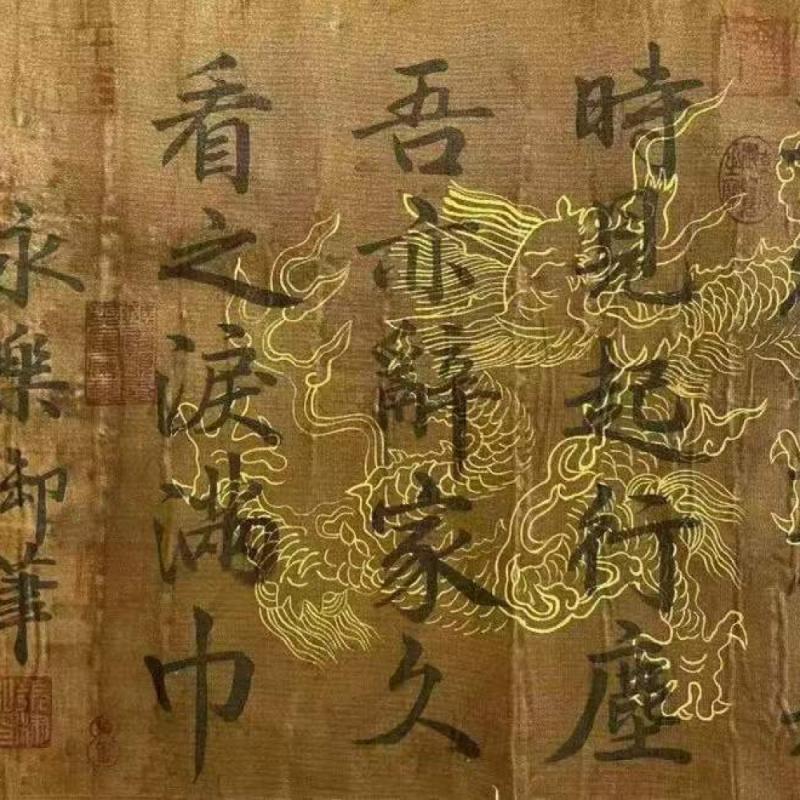 時見起行塵
吾亦辭家久
看之淚滿巾
永樂御筆